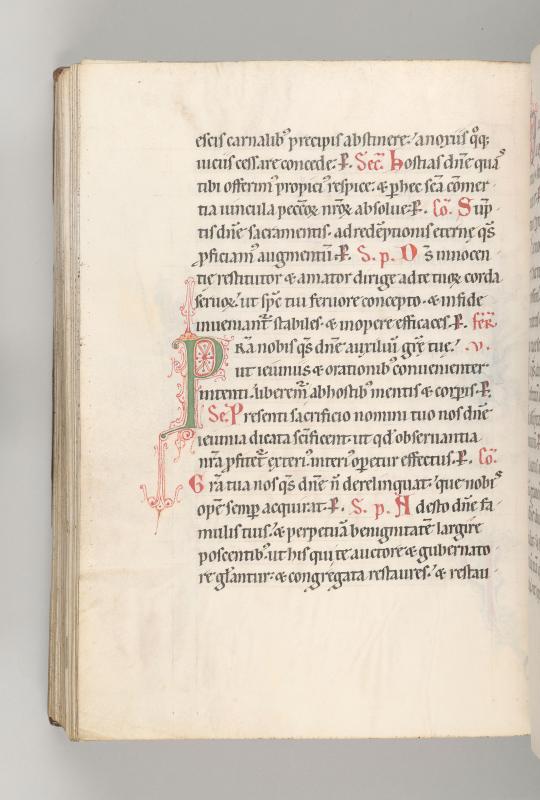 escis carnalib; precipis abstinere: a noxiis qͦq;
uiciis cessare concede. P. Sec̄. Hostias dn̄e quas
tibi offerim᷒ propici᷒ respice: ⁊ p hec sc̄a cōmer
tia uincula pecc̄oꝝ nr̄oꝝ absolue. P. Cō. Suscep
tis dn̄e sacramentis. ad redēptionis eterne q̄s
ꝓficiam᷒ augmentū. P. S. p. Ds̄ innocen
tie restitutor ⁊ amator dirige ad te tuoꝝ corda
seruoꝝ: ut sp̄c tui feruore concepto. ⁊ in fide
inueniant᷑ stabiles. ⁊ in opere efficaces. P. fer̄.
PRA nobis q̄s dn̄e auxiliū gr̄e tue: v.
ut ieiuniis ⁊ orationib; conuenienter
intenti. liberem᷑ ab hostib; mentis ⁊ corp̄is. P.
Se. Presenti sacrificio nomini tuo nos dn̄e
ieiunia dicata sc̄ificent. ut qd̓ obseruantia
nr̄a ꝓfitet᷑ exteri᷒ interi᷒ opetur effectus. P. Cō.
Gr̄a tua nos q̄s dn̄e n̄ derelinquat: que nobis
opē semp acquirat. P. S. p. Adesto dn̄e fa
mulis tuis: ⁊ perpetuā benignitatē largire
poscentib; ut his qui te auctore ⁊ gubernato
re gl̄antur: ⁊ congregata restaures: ⁊ restau